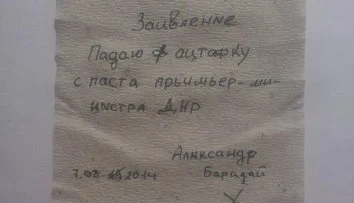 Заивление
Падаю в ацтафку
с паста прьимьер-ми-
мистра ДНР
Аликсандр
Барадай
7.08.2014